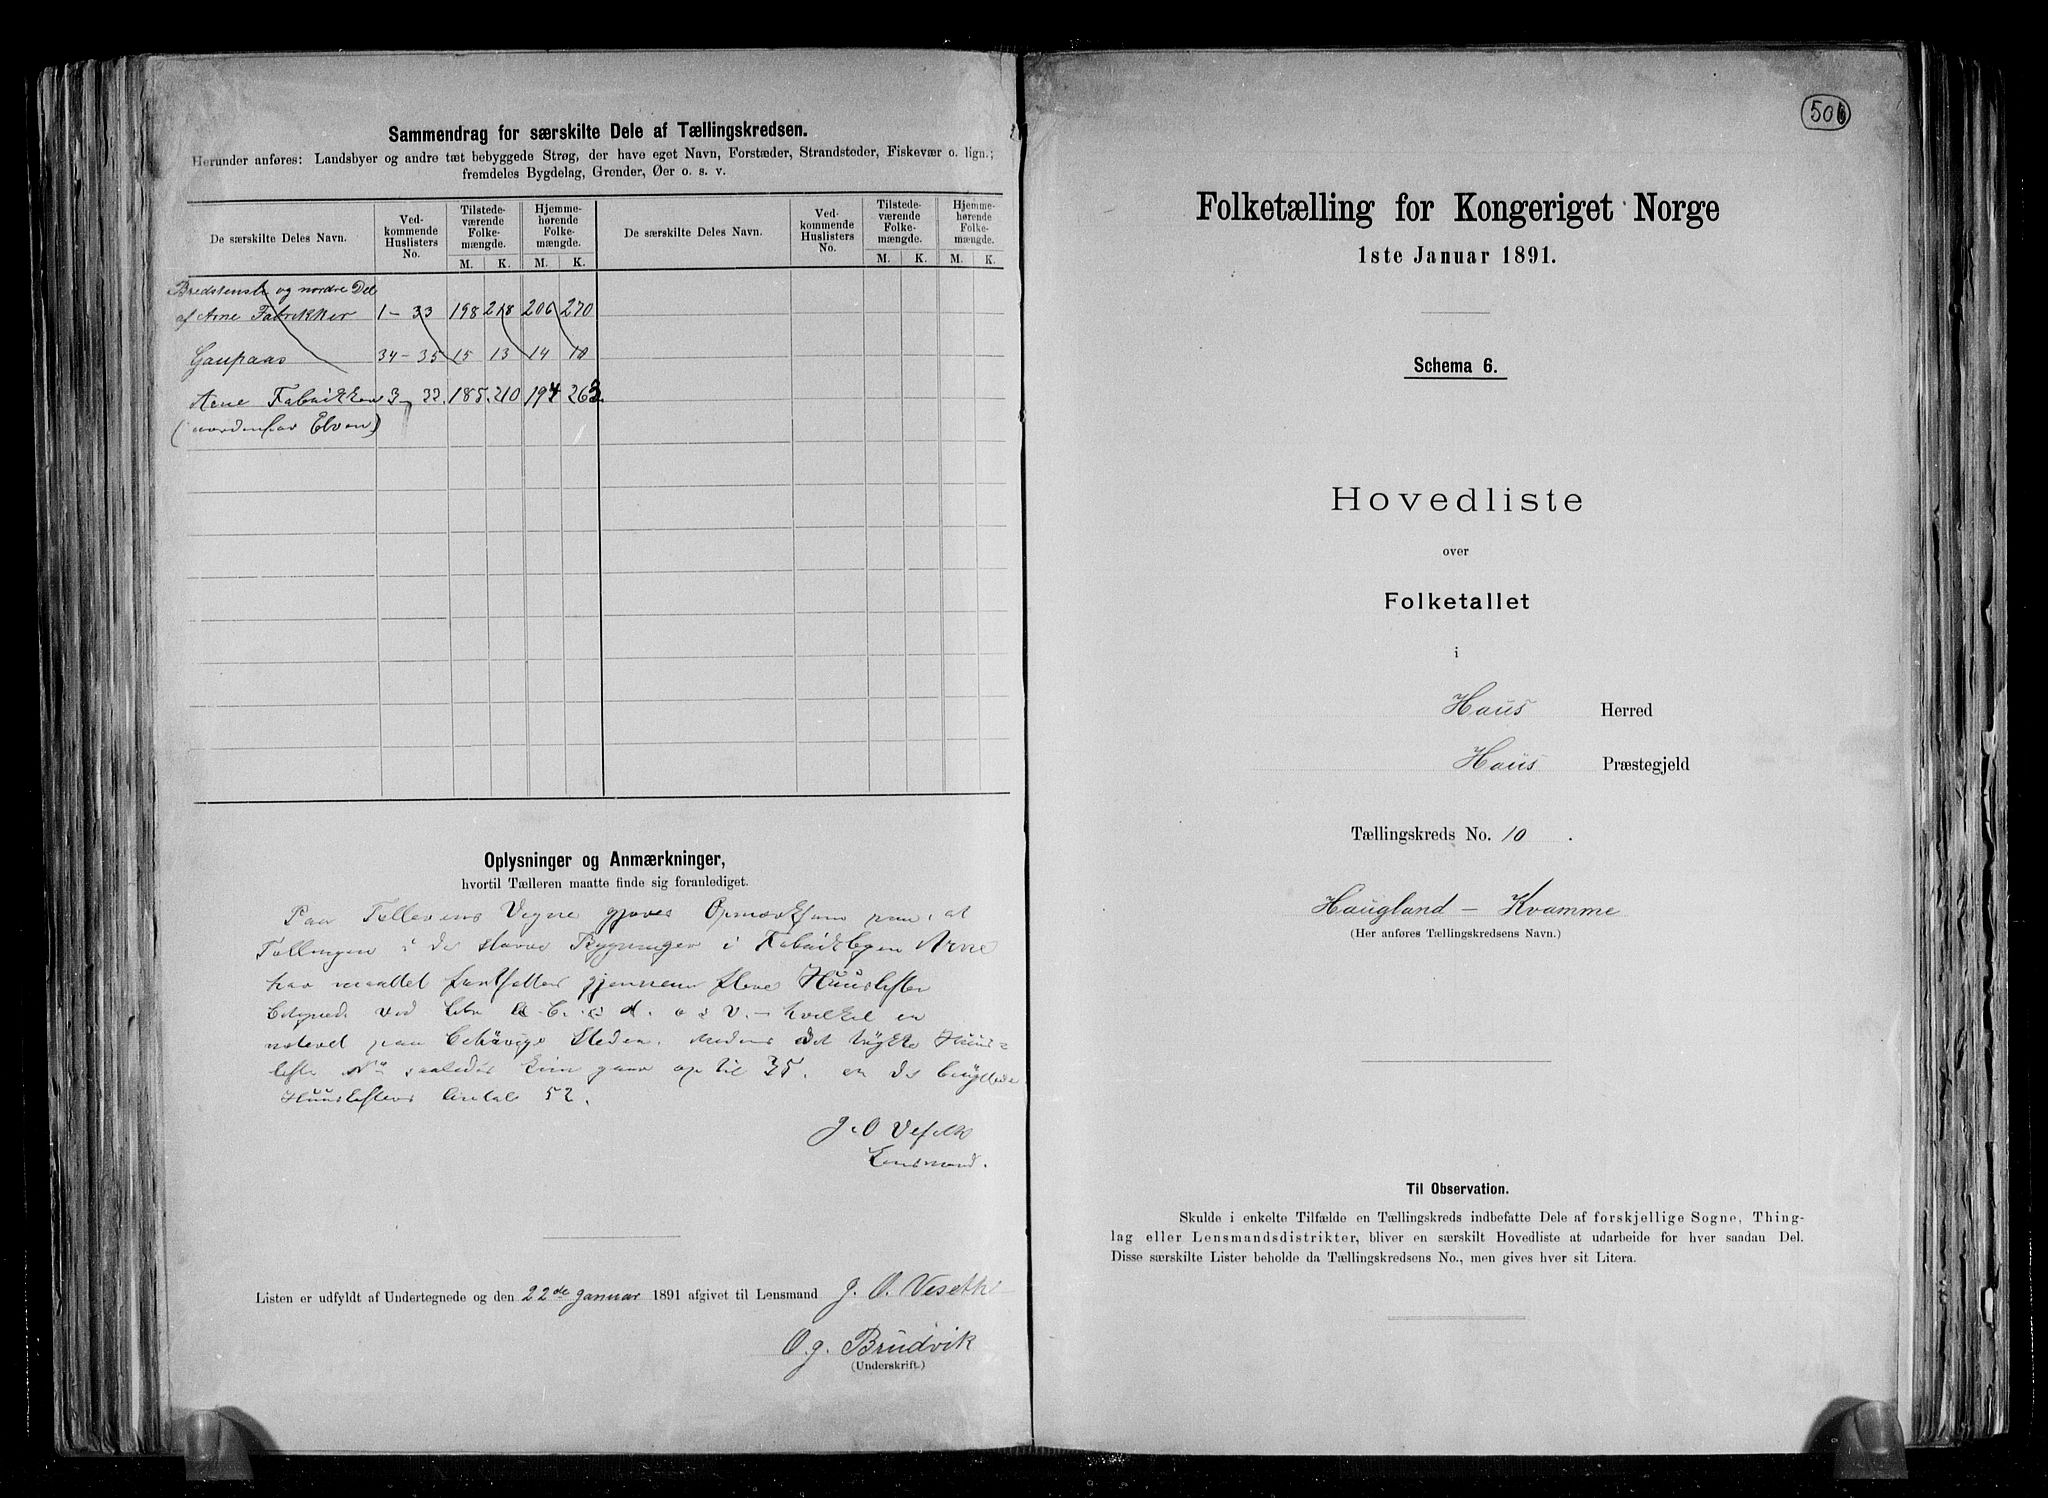 Sammendrag for særskilte Dele af Tællingskredsen.
Herunder anføres: Landsbyer og andre tæt bebyggede Strøg, der have eget Navn, Forstæder, Strandsteder, Fiskevær o. lign.;
fremdeles Bygdelag, Grender, Øer o. s. v.
De særskilte Deles Navn. Ved-kommende Huslisters No. Tilstede-værende Folke-mængde. M. K. Hjemme-hørende Folke-mængde. M. K. De særskilte Deles Navn. Ved-kommende Huslisters No. Tilstede-værende Folke-mængde. M. K. Hjemme-hørende Folke-mængde. M. K.
og nordre Del
af Arne Fabrikker 1 - 33 198 218 206 270
Gaupaas 34 - 35 15 13 14 10
Arne Fabrikken 3 185. 210 194 263.
(nordenfor Elven)
Oplysninger og Anmærkninger,
hvortil Tælleren maatte finde sig foranlediget.
Paa Tællerens Vegne gjøres Opmærksom paa, at
Tællingen i de Bygninger i Arne
har maattet gjennem flere Huuslister
ved o s v. - hvilket er
paa Steden. det Huus-
liste No gaar op til 35. er de
Huuslisters Antal 52.
Lensmand.
Listen er udfyldt af Undertegnede og den 22de Januar 1891 afgivet til Lensmand J. O. Veseth
O. J. Brudvik
(Underskrift.)
506
Folketælling for Kongeriget Norge
1ste Januar 1891.
Schema 6.
Hovedliste
over
Folketallet
i
Haus Herred
Haus Præstegjeld
Tællingskreds No. 10.
Haugland - Kvamme
(Her anføres Tællingskredsens Navn.)
Til Observation.
Skulde i enkelte Tilfælde en Tællingskreds indbefatte Dele af forskjellige Sogne, Thing-
lag eller Lensmandsdistrikter, bliver en særskilt Hovedliste at udarbeide for hver saadan Del.
Disse særskilte Lister beholde da Tællingskredsens No., men gives hver sit Litera.